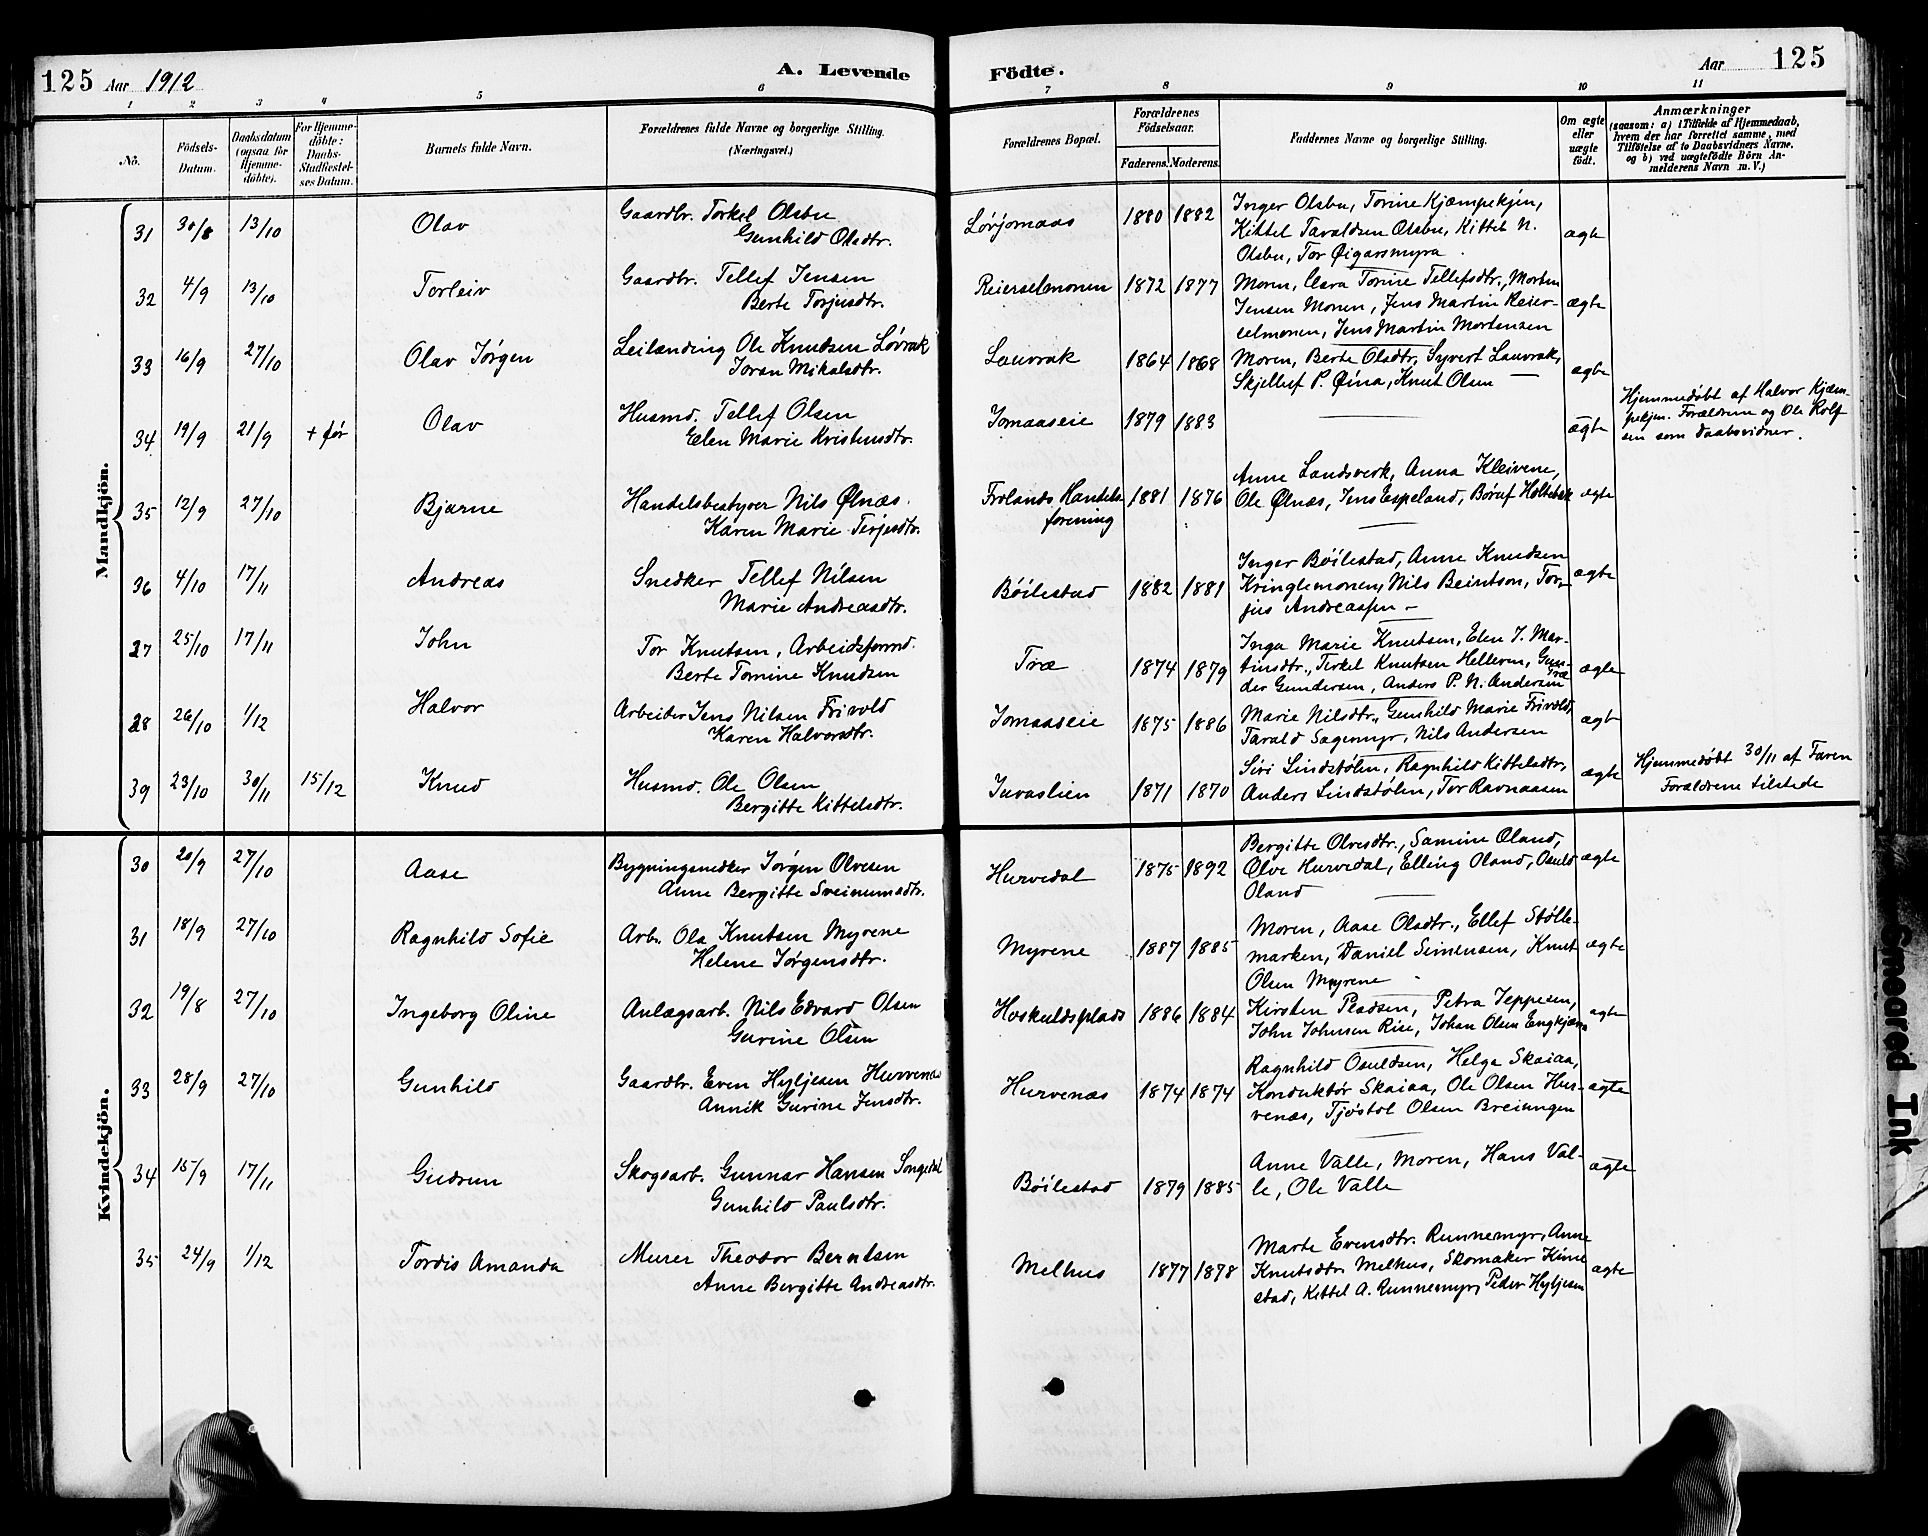 125 Aar 1912 A. Levende Födte. Aar 125
1 2 3 4 5 6 7 8 9 10 11
No. Födsels-Datum. Daabsdatum (ogsaa for Hjemmedöbte). For Hjemmedöbte: Daabs-Stadfestelses Datum. Barnets fulde Navn. Forældrenes fulde Navne og borgerlige Stilling. (Næringsvei.) Forældrenes Bopæl. Forældrenes Födselsaar. Faderens. Moderens. Faddernes Navne og borgerlige Stilling. Om ægte eller uægte födt. Anmærkninger (saasom: a) i Tilfælde af Hjemmedaab, hvem der har forrettet samme, med Tilföielse af to Daabsvidners Navne, og b) ved uægtefödte Börn Anmelderens Navn m. V.)
Mandkjön.
31 30/8 13/10 Olav Gaardbr. Torkel Olsbu Løvjomaas 1880 1882 Inger Olsbu, Torine Kjæmpekjen,
Gunhild Olsdtr. Kittel Taraldsen Olsbu, Kittel N. ægte
Olsbu, Tor Øigarsmyra.
32 4/9 13/10 Torleiv Gaardbr. Tellef Jensen Reierselmonen 1872 1877 Moren, Clara Torine Tellefsdtr., Morten
Berte Torjusdtr. Jensen Monen, Jens Martin Reier- ægte
selmonen, Jens Martin Mortensen
33 16/9 27/10 Olav Jørgen Leilænding Ole Knudsen Løvrak Lauvrak 1864 1868 Moren, Berte Olsdtr, Syvert Lauvrak,
Joran Mikalsdtr. Skjelluf P. Øina, Knut Olsen — ægte
34 19/9 21/9 + før Olav Husmd. Tellef Olsen Jomaaseie 1879 1883 ægte Hjemmedøbt af Halvor Kjæm-
Elen Marie Kristensdtr. pekjen. Forældrene og Ole Rolf
sen som Daabsvidner.
35 12/9 27/10 Bjarne Handelsbestyrer Nils Ølnæs. Frolands Handels 1881 1876 Anne Landsverk, Anna Kleivene,
Karen Marie Terjesdtr. forening Ole Ølnæs, Jens Espeland, Børuf Holtebæk ægte
36 4/10 17/11 Andreas Snedker Tellef Nilsen Bøilestad 1882 1881 Inger Bøilestad, Anne Knudsen ægte
Marie Andreasdtr. Kringlemonen, Nils Beintson, Tor-
jus Andreassen —
27 25/10 17/11 John Tor Knutsen, Arbeidsformd. Træ 1874 1879 Inga Marie Knutsen, Elen J. Mar-
Berte Tomine Knudsen tinsdtr., Terkel Knutsen Helleren, Gun- ægte
der Gundersen, Anders P. N. Andersen Træ
28 26/10 1/12 Halvor Arbeider Jens Nilsen Frivold Jomaaseie 1875 1886 Marie Nilsdtr., Gunhild Marie Frivold, ægte
Karen Halvorsdtr. Tarald Sagemyr, Nils Andersen
39 23/10 30/11 15/12 Knud Husmd. Ole Olsen Juvaslien 1871 1870 Siri Lindstølen, Ragnhild Kittelsdtr, ægte Hjemmedøbt 30/11 af Faren
Bergitte Kittelsdtr. Anders Lindstølen, Tor Ravnaasen Forældrene tilstede
Kvindekjön.
30 20/9 27/10 Aase Bygningssnedker Jørgen Olvesen Hurvedal 1875 1892 Bergitte Olvesdtr., Samine Oland, ægte
Anne Bergitte Sveinumsdtr. Olve Hurvedal, Elling Oland, Osuld
Oland
31 18/9 27/10 Ragnhild Sofie Arb. Ola Knutsen Myrene Myrene 1887 1885 Moren, Aase Olsdtr., Ellef Stølle-
Helene Jørgensdtr. marken, Daniel Simensen, Knut ægte
Olsen Myrene
32 19/8 27/10 Ingeborg Oline Anlægsarb. Nils Edvard Olsen Hoskuldsplads 1886 1884 Kirsten Pladsen, Petra Jeppesen, ægte
Gurine Olsen John Johnsen Rise, Johan Olsen Engkjærn
33 28/9 27/10 Gunhild Gaardbr. Even Hyljesen Hurvenæs Hurvenæs 1874 1874 Ragnhild Osuldsen, Helga Skaiaa,
Annik Gurine Jensdtr. Konduktør Skaiaa, Ole Olsen Hur- ægte
venæs, Tjøstol Olsen Breiungen
34 15/9 17/11 Gudrun Skogsarb. Gunnar Hansen Songedal Bøilestad 1879 1885 Anne Valle, Moren, Hans Val- ægte
Gunhild Paulsdtr. le, Ole Valle
35 24/9 1/12 Tordis Amanda Murer Theodor Berntsen Melhus 1877 1878 Marte Evensdtr. Runnemyr, Anne
Anne Bergitte Andreasdtr. Knutsdtr. Melhus, Skomaker Kime ægte
stad, Kittel A. Runnemyr, Peder Hyljesen
Smeared Ink